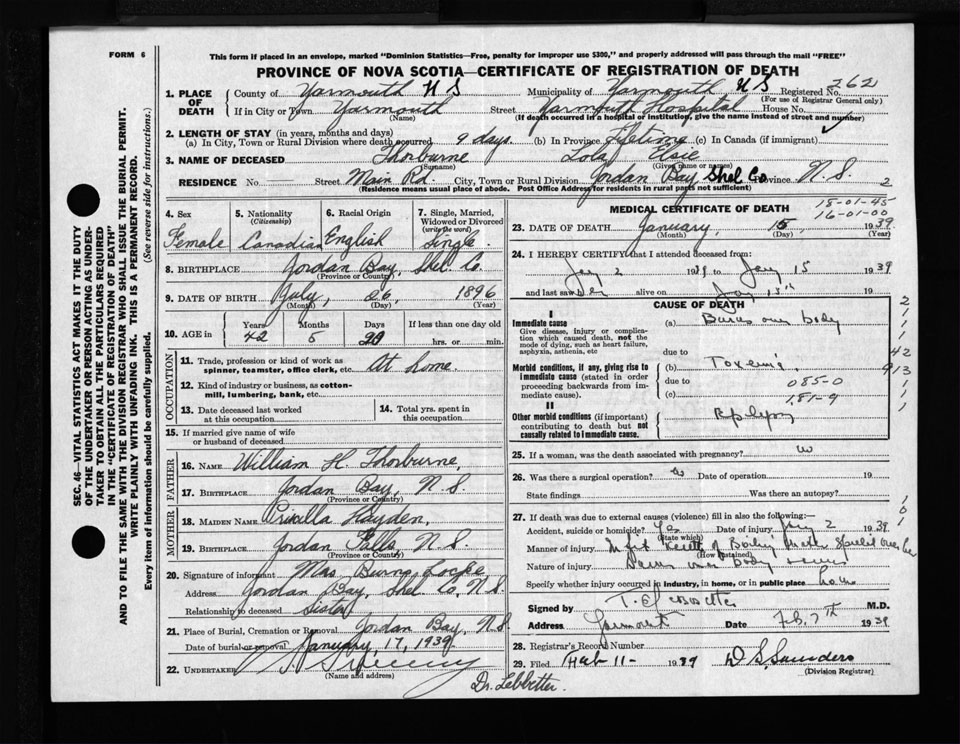 FORM 6
This form if placed in an envelope, marked "Dominion Statistics—Free, penalty for improper use $300," and properly addressed will pass through the mail "FREE"
PROVINCE OF NOVA SCOTIA—CERTIFICATE OF REGISTRATION OF DEATH
1. PLACE OF DEATH
County of Yarmouth N S Municipality of Yarmouth, N S Registered No. 262
(For use of Registrar General only)
If in City or Town Yarmouth Street Yarmouth Hospital House No.
(Name) (If death occurred in a hospital or institution, give the name instead of street and number)
2. LENGTH OF STAY (in years, months and days)
(a) In City, Town or Rural Division where death occurred 9 days. (b) In Province Lifetime (c) In Canada (if immigrant)
3. NAME OF DECEASED Thorburne Lola Elsie
(Surname) (Given name or names)
RESIDENCE No. Street Main Rd. City, Town or Rural Division Jordan Bay Shel Co Province N. S. 2
(Residence means usual place of abode. Post Office Address for residents in rural parts not sufficient)
4. Sex Female
5. Nationality (Citizenship) Canadian
6. Racial Origin English
7. Single, Married, Widowed or Divorced (write the word) Single.
8. BIRTHPLACE Jordan Bay, Shel Co.
(Province or Country)
9. DATE OF BIRTH July, 26, 1896
(Month) (Day) (Year)
10. AGE in Years 42 Months 5 Days 20 If less than one day old hrs. or min.
OCCUPATION
11. Trade, profession or kind of work as spinner, teamster, office clerk, etc. At home
12. Kind of industry or business, as cotton-mill, lumbering, bank, etc.
13. Date deceased last worked at this occupation
14. Total yrs. spent in this occupation
15. If married give name of wife or husband of deceased
FATHER
16. NAME William H. Thorburne,
17. BIRTHPLACE Jordan Bay, N. S.
(Province or Country)
MOTHER
18. MAIDEN NAME Priscilla Hayden,
19. BIRTHPLACE Jordan Falls N. S.
(Province or Country)
20. Signature of informant Mrs Burns Locke
Address Jordan Bay, Shel Co, N. S.
Relationship to deceased Sister
21. Place of Burial, Cremation or Removal Jordan Bay, N. S.
Date of burial or removal January, 17, 1939
22. UNDERTAKER Sweeny
(Name and address)
Dr. Lebbetter.
MEDICAL CERTIFICATE OF DEATH
15-01-45
16-01-00
23. DATE OF DEATH January, 15, 1939
(Month) (Day) (Year)
24. I HEREBY CERTIFY that I attended deceased from:
Jay 2 1939 to Jay 15 1939
and last saw her alive on Jay 15th 19
CAUSE OF DEATH
I
Immediate cause
Give disease, injury or complication which caused death, not the mode of dying, such as heart failure, asphyxia, asthenia, etc
(a) Burns over body
due to
Morbid conditions, if any, giving rise to immediate cause (stated in order proceeding backwards from immediate cause).
(b) Toxemia
due to 085-0
(c) 181-9
II
Other morbid conditions (if important) contributing to death but not causally related to immediate cause.
Epilepsy
42
913
25. If a woman, was the death associated with pregnancy? no
26. Was there a surgical operation? no Date of operation 19
State findings Was there an autopsy?
27. If death was due to external causes (violence) fill in also the following:—
Accident, suicide or homicide? Yes Date of injury Jay 2 1939
(State which)
Manner of injury Kettle of Boiling Water Spilled over her
(How sustained)
Nature of injury Burns over body
Specify whether injury occurred in industry, in home, or in public place home
Signed by M.D.
Address Yarmouth Date Feb. 7th 1939
28. Registrar's Record Number
29. Filed Feb 11- 1939 D S Saunders
(Division Registrar)
SEC. 46—VITAL STATISTICS ACT MAKES IT THE DUTY
OF THE UNDERTAKER OR PERSON ACTING AS UNDER-
TAKER TO OBTAIN ALL THE PARTICULARS REQUIRED
IN THE "CERTIFICATE OF REGISTRATION OF DEATH"
AND TO FILE THE SAME WITH THE DIVISION REGISTRAR WHO SHALL ISSUE THE BURIAL PERMIT.
WRITE PLAINLY WITH UNFADING INK. THIS IS A PERMANENT RECORD.
Every item of information should be carefully supplied. (See reverse side for instructions.)